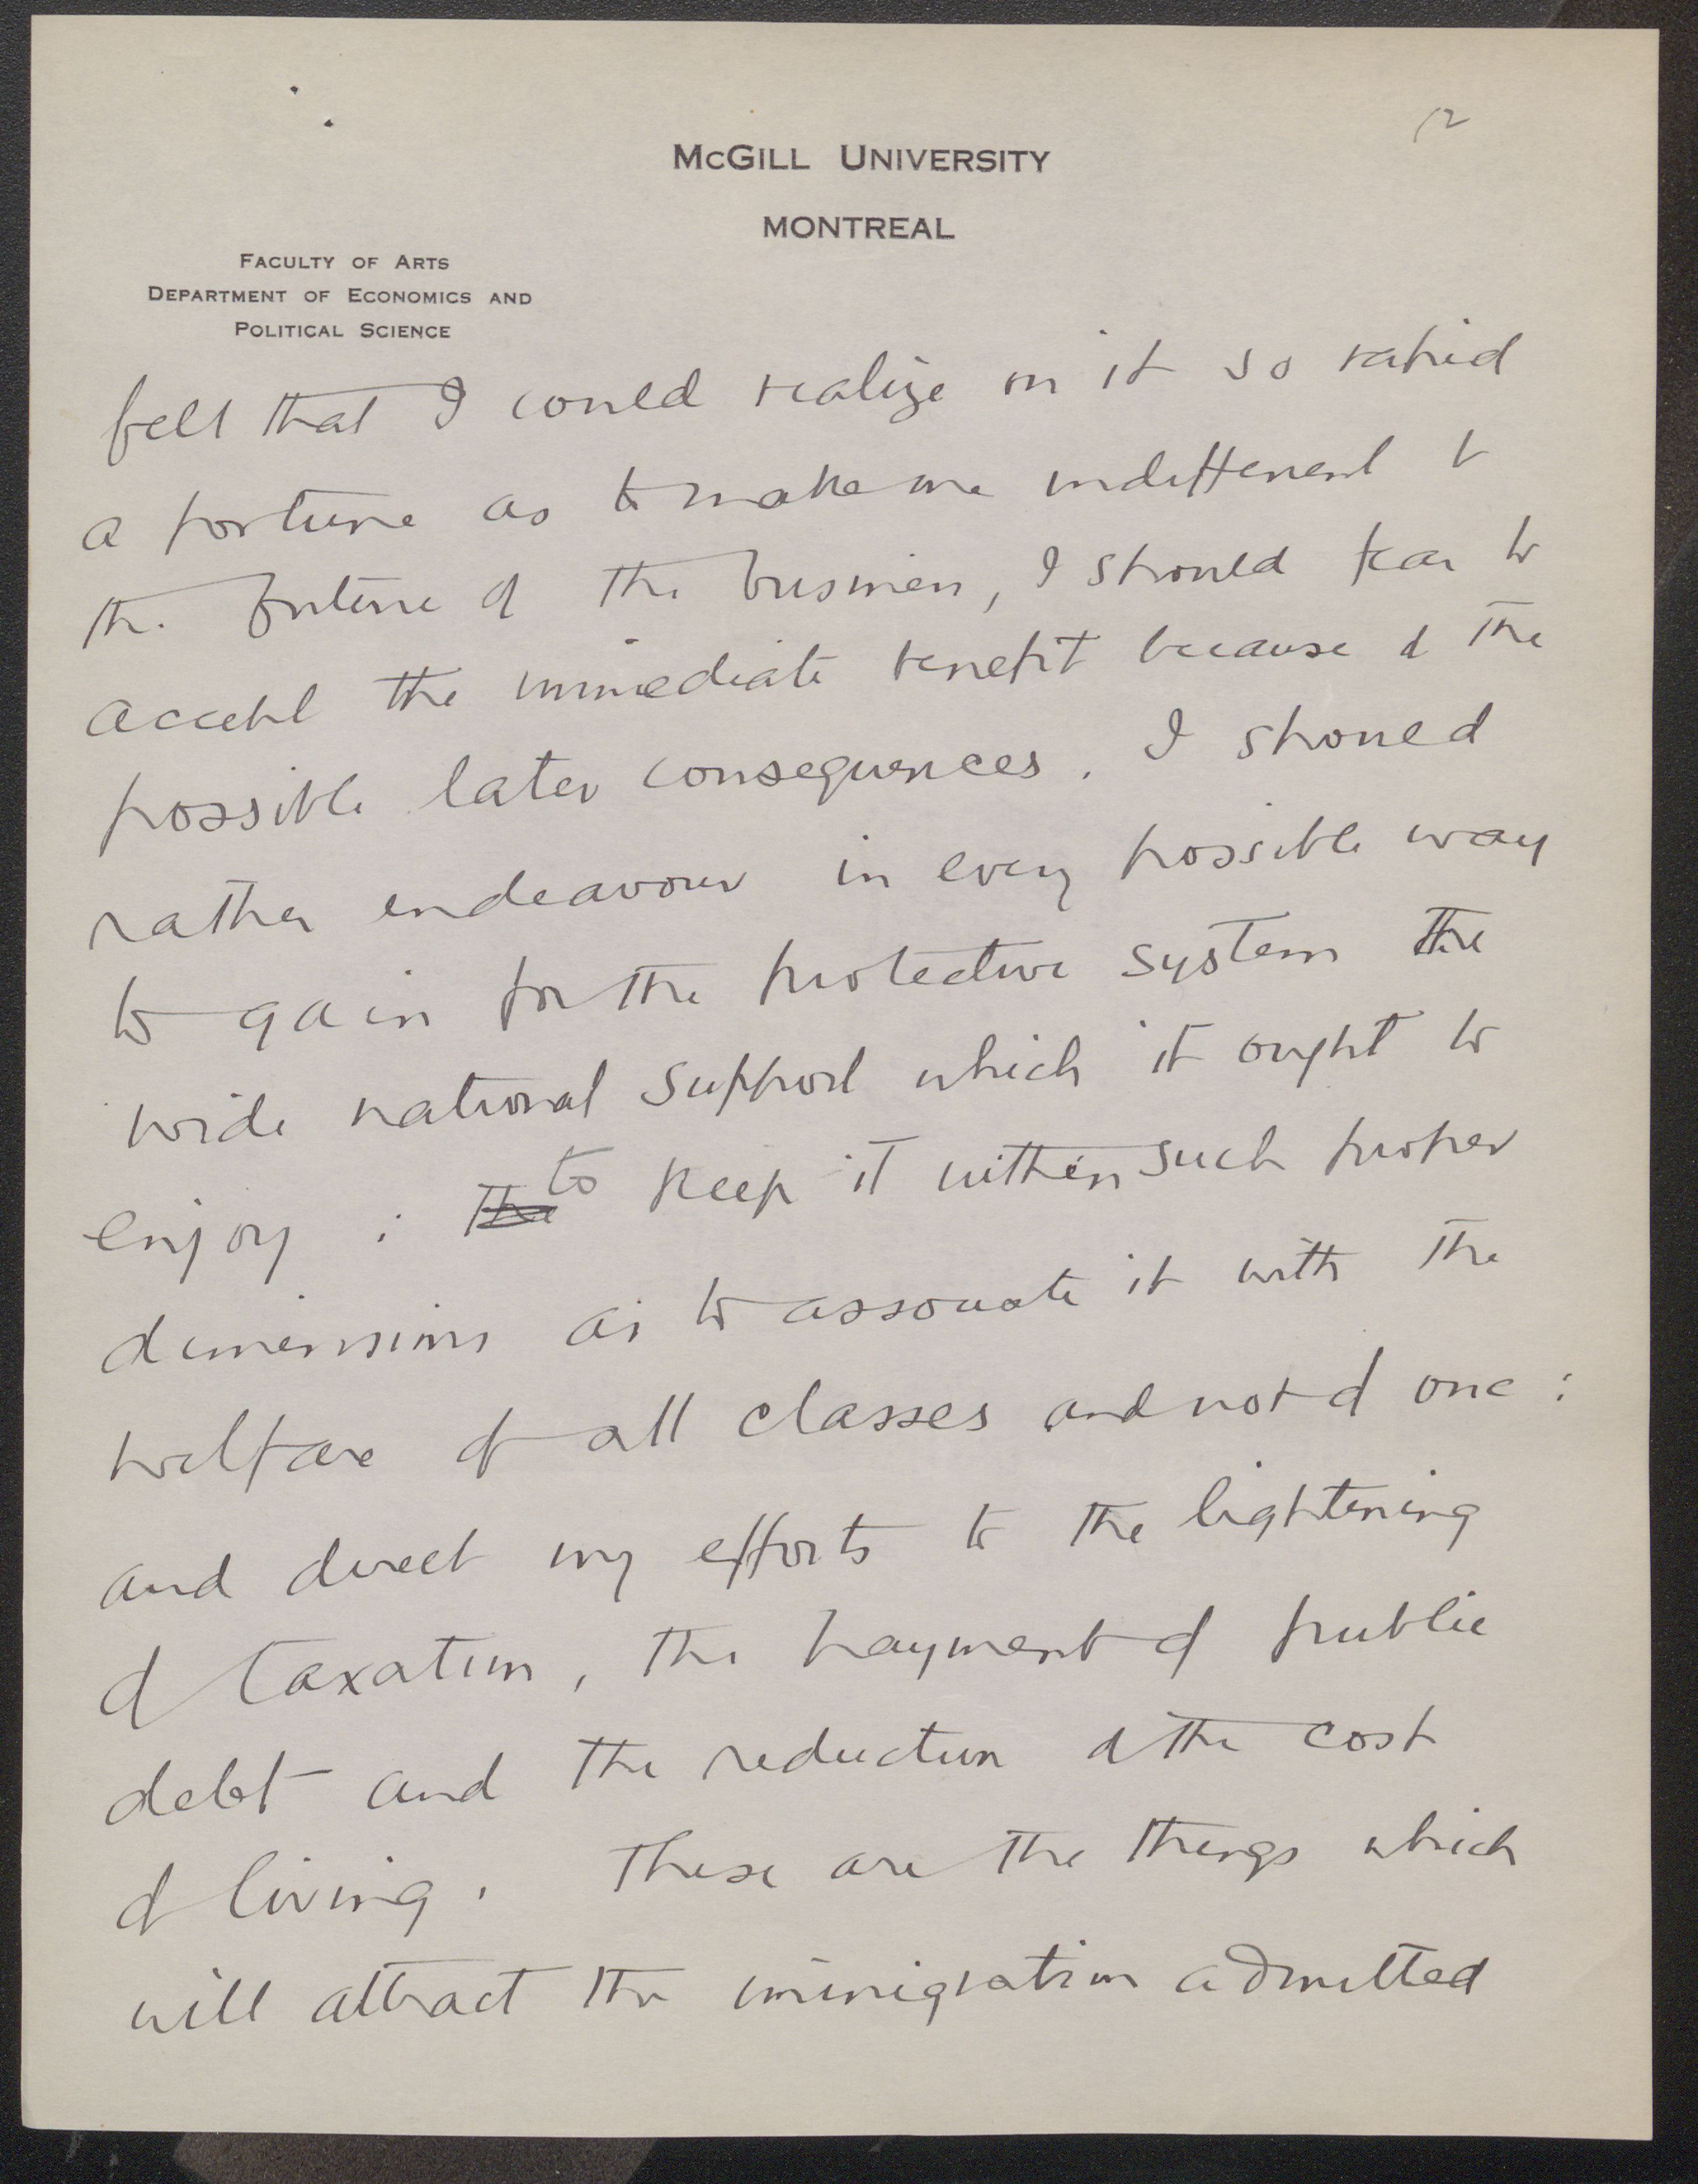 12
McGILL UNIVERSITY
MONTREAL
FACULTY OF ARTS
DEPARTMENT OF ECONOMICS AND
POLITICAL SCIENCE
felt that I could realize on it so rapid
a fortune as to make me indifferent to
the future of the business, I should fear to
accept the immediate benefit because of the
possible later consequences. I should
rather endeavour in every possible way
to gain for the protective system the
wide national support which it ought to
enjoy : the to keep it within such proper
dimensions as to associate it with the
welfare of all classes and not of one :
and direct my efforts to the lightening
of taxation, the payment of public
debt and the reduction of the cost
of living. These are the things which
will attract the immigration admitted